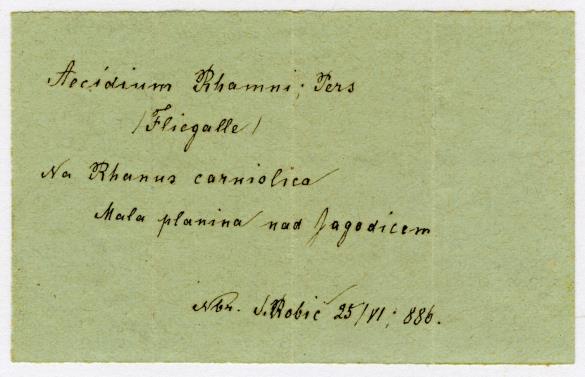 Aecidium Rhamni; Pers
(Fliegalle)
Na Rhanus carniolica
Mala planina nad Jagodicem
Nbr. S. Robič 25/VI; 886.